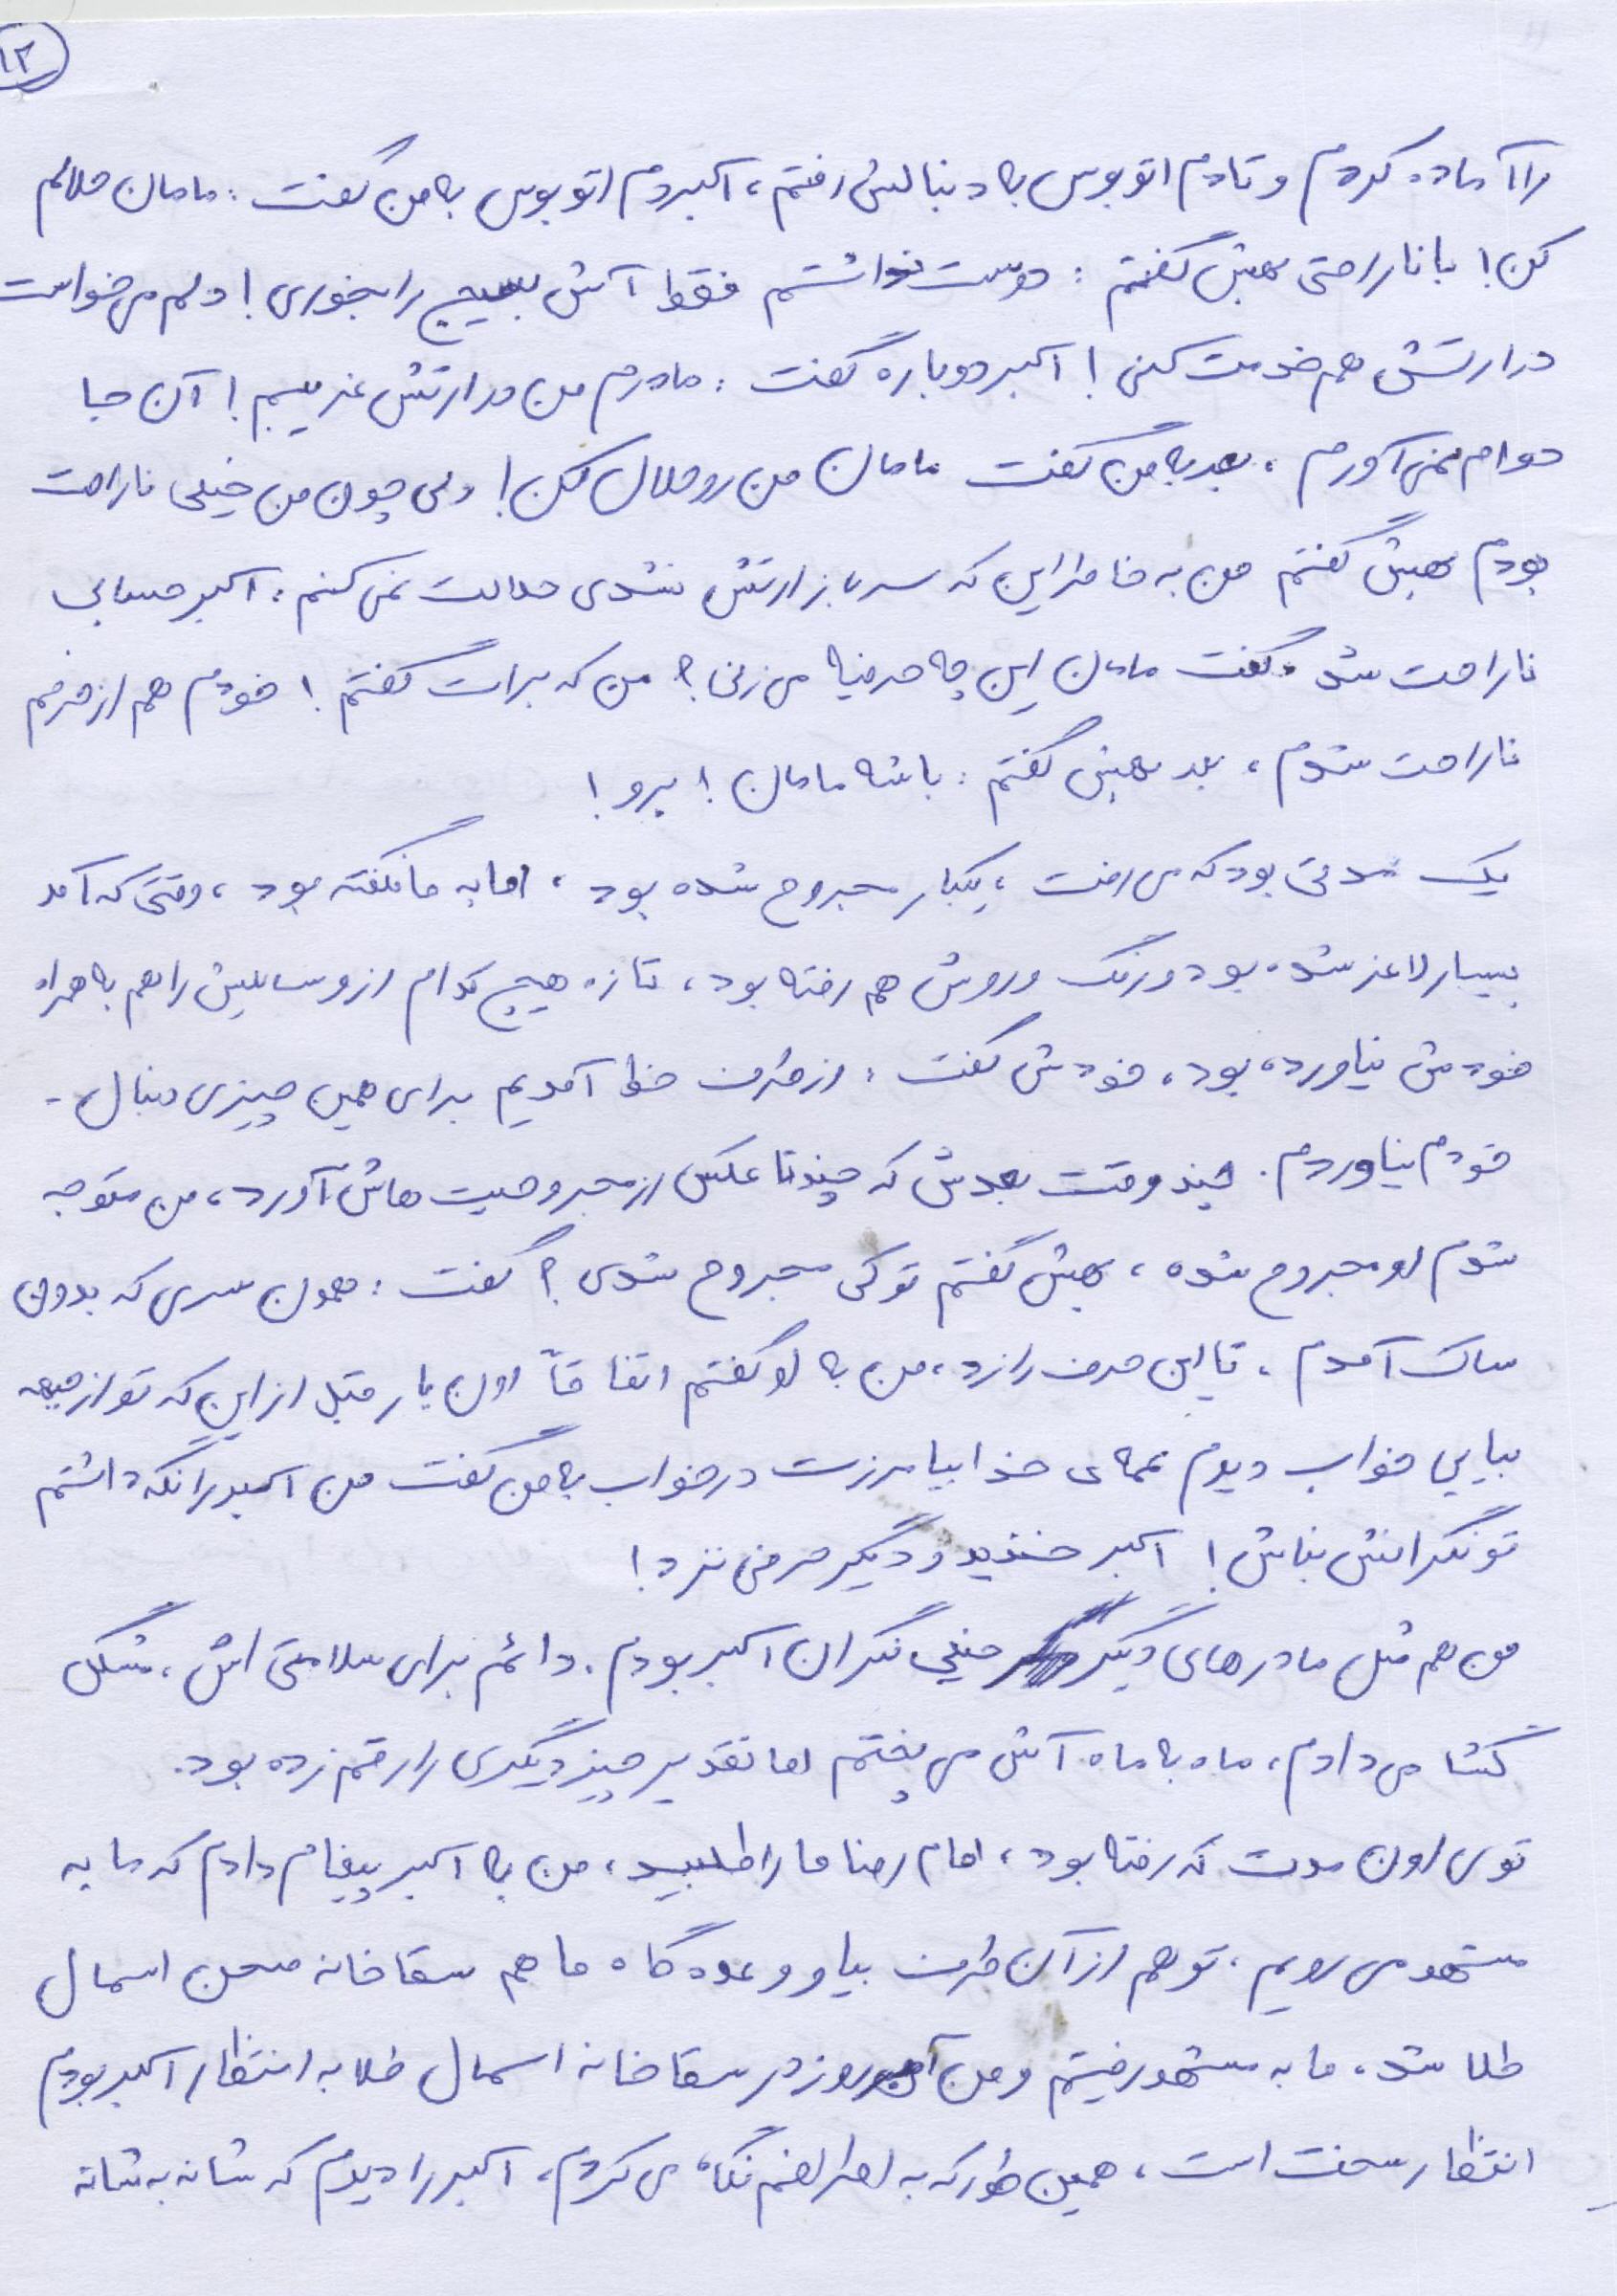 ۱۲
را آماده کردم و تا دم اتوبوس به دنبالش رفتم، اکبر دم اتوبوس به من گفت: مامان حلالم
کن! با ناراحتی بهش گفتم: دوست نداشتم فقط آش بسیج را بخوری! دلم می خواست
در ارتش هم خدمت کنی! اکبر دوباره گفت: مادرم من در ارتش غریبم! آن جا
دوام نمی آورم، بعد به من گفت مامان من رو حلال کن! ولی چون من خیلی ناراحت
بودم بهش گفتم من به خاطر این که سرباز ارتش نشدی حلالت نمی کنم، اکبر حسابی
ناراحت شد و گفت مامان این چه حرفیه می زنی؟ من که برات گفتم! خودم هم از حرفم
ناراحت شدم، بعد بهش گفتم: باشه مامان! برو!
یک مدتی بود که می رفت، یکبار مجروح شده بود، اما به ما نگفته بود، وقتی که آمد
بسیار لاغر شده بود و رنگ و روش هم رفته بود، تازه هیچ کدام از وسایلش را هم به همراه
خودش نیاورده بود، خودش گفت: از طرف خط آمدیم برای همین چیزی دنبال -
خودم نیاوردم. چند وقت بعدش که چند تا عکس از مجروحیت هاش آورد، من متوجه
شدم او مجروح شده، بهش گفتم تو کی مجروح شدی؟ گفت: همون سری که بدون
ساک آمدم، تا این حرف را زد، من به او گفتم اتفاقاً اون بار قبل از این که تو از جبهه
بیایی خواب دیدم عمه ی خدا بیامرزت در خواب به من گفت من اکبر را نگه داشتم
تو نگرانش نباش! اکبر خندید و دیگر حرفی نزد!
من هم مثل مادرهای دیگر خیلی نگران اکبر بودم. دائم برای سلامتی اش، مشکل
گشا می دادم، ماه به ماه آش می پختم اما تقدیر چیز دیگری را رقم زده بود.
توی اون مدت که رفته بود، امام رضا ما را طلبید، من به اکبر پیغام دادم که ما به
مشهد می رویم، تو هم از آن طرف بیا و وعده گاه ما هم سقاخانه صحن اسمال
طلا شد، ما به مشهد رفتیم و من آن روز در سقاخانه اسمال طلا به انتظار اکبر بودم
انتظار سخت است، همین طور که به اطرافم نگاه می کردم، اکبر را دیدم که شانه به شانه